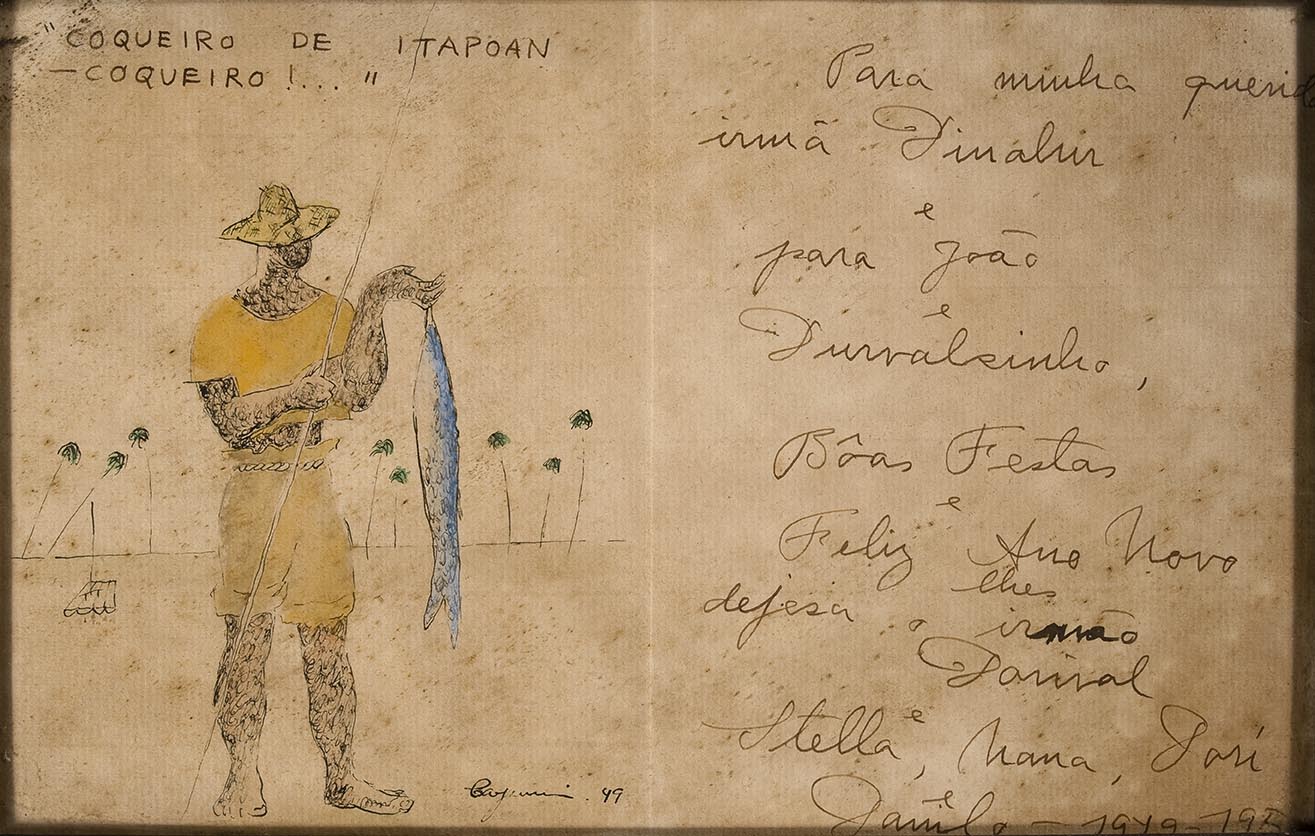 "COQUEIRO DE ITAPOAN
—COQUEIRO!... "
Caymmi . 49
Para minha querid
irmã Dinahir
e
para João
e
Durvalzinho,
Bôas Festas
e
Feliz Ano Novo
lhes
dejesa o irmão
Dorival
e
Stella, Nana, Dori
e
Danilo - 1949-195